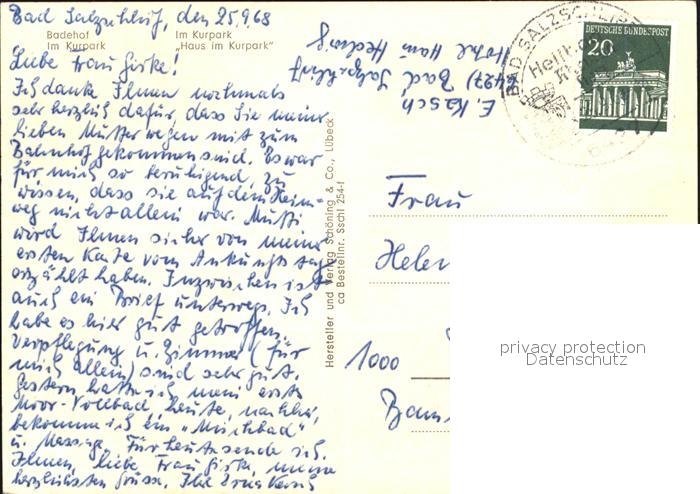 Bad Salzschlirf, den 25.9.68
Badehof
Im Kurpark
Im Kurpark
„Haus im Kurpark"
Liebe Frau Girke!
Ich danke Ihnen nochmals
sehr herzlich dafür, dass Sie meiner
lieben Mutter wegen mit zum
Bahnhof gekommen sind. Es war
für mich so beruhigend, zu
wissen, dass sie auf dem Heim-
weg nicht allein war. Mutti
wird Ihnen sicher von meiner
ersten Karte vom Ankunftstag
erzählt haben. Inzwischen ist
auch ein Brief unterwegs. Ich
habe es hier gut getroffen,
Verpflegung u. Zimmer (für
mich allein) sind sehr gut.
Gestern hatte ich mein erstes
Moor-Vollbad, heute, nachher,
bekomme ich ein „Milchbad"
u. Massage. Für heute sende ich
Ihnen, liebe Frau Girke, meine
herzlichsten Grüsse. Ihre Erna Kasch
E. Kasch
6427) Bad Salzschlirf
Hotel Haus Hedwig
Hersteller und Verlag Schöning & Co., Lübeck
ca Bestellnr. Sschl 254-f
BAD SALZSCHLIRF
DEUTSCHE BUNDESPOST
20
Frau
Helen
1000
privacy protection
Datenschutz